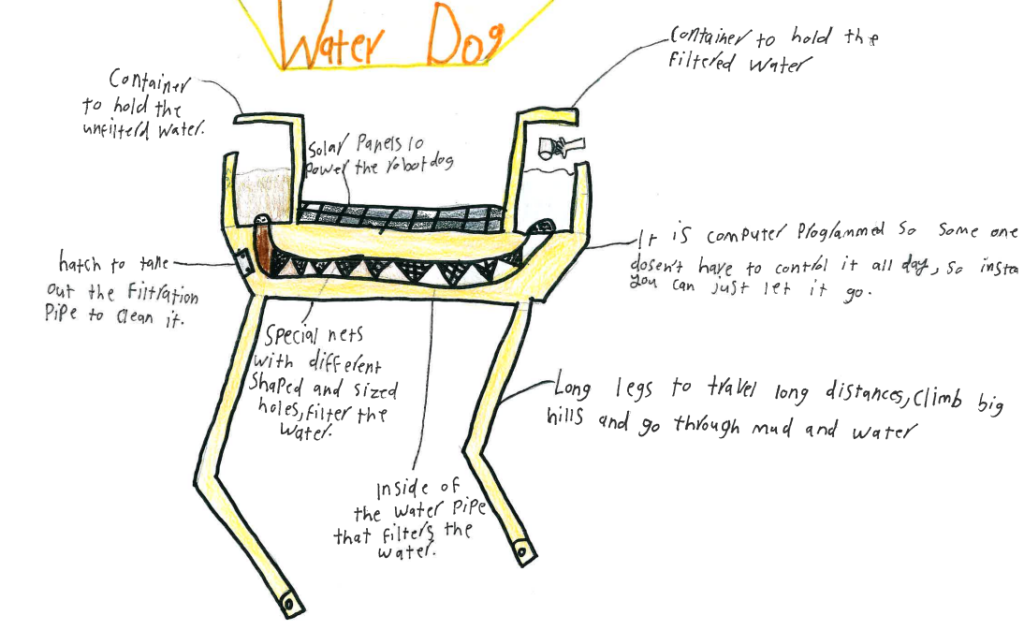 Water Dog
Container
to hold the
unfilterd water.
Container to hold the
Filtered water
Solar Panels to
power the robot dog
It is computer programmed so some one
dosen't have to control it all day, so insta
you can just let it go.
hatch to take
out the Filtration
Pipe to clean it.
Special nets
with different
shaped and sized
holes, filter the
water.
Long legs to travel long distances, climb big
hills and go through mud and water
Inside of
the water pipe
that filters the
water.